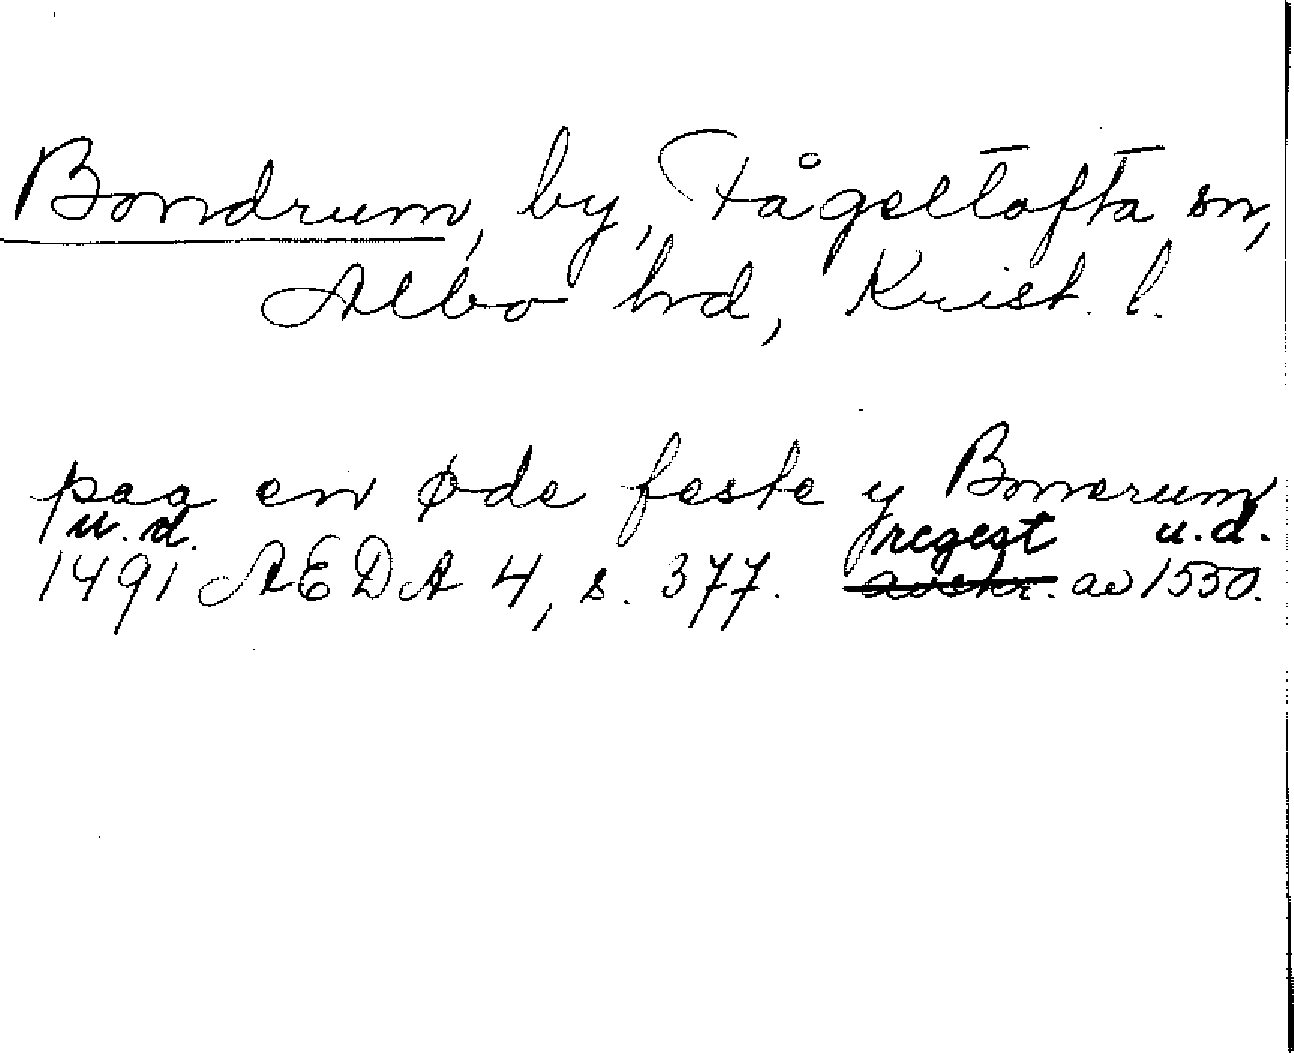 Bondrum, by, Fågeltofta sn,
Albo hd, Krist. l.
paa en øde feste y Bonerum
u.d. regest u.d.
1491 AEDA 4, s. 377. avskr. av 1550.